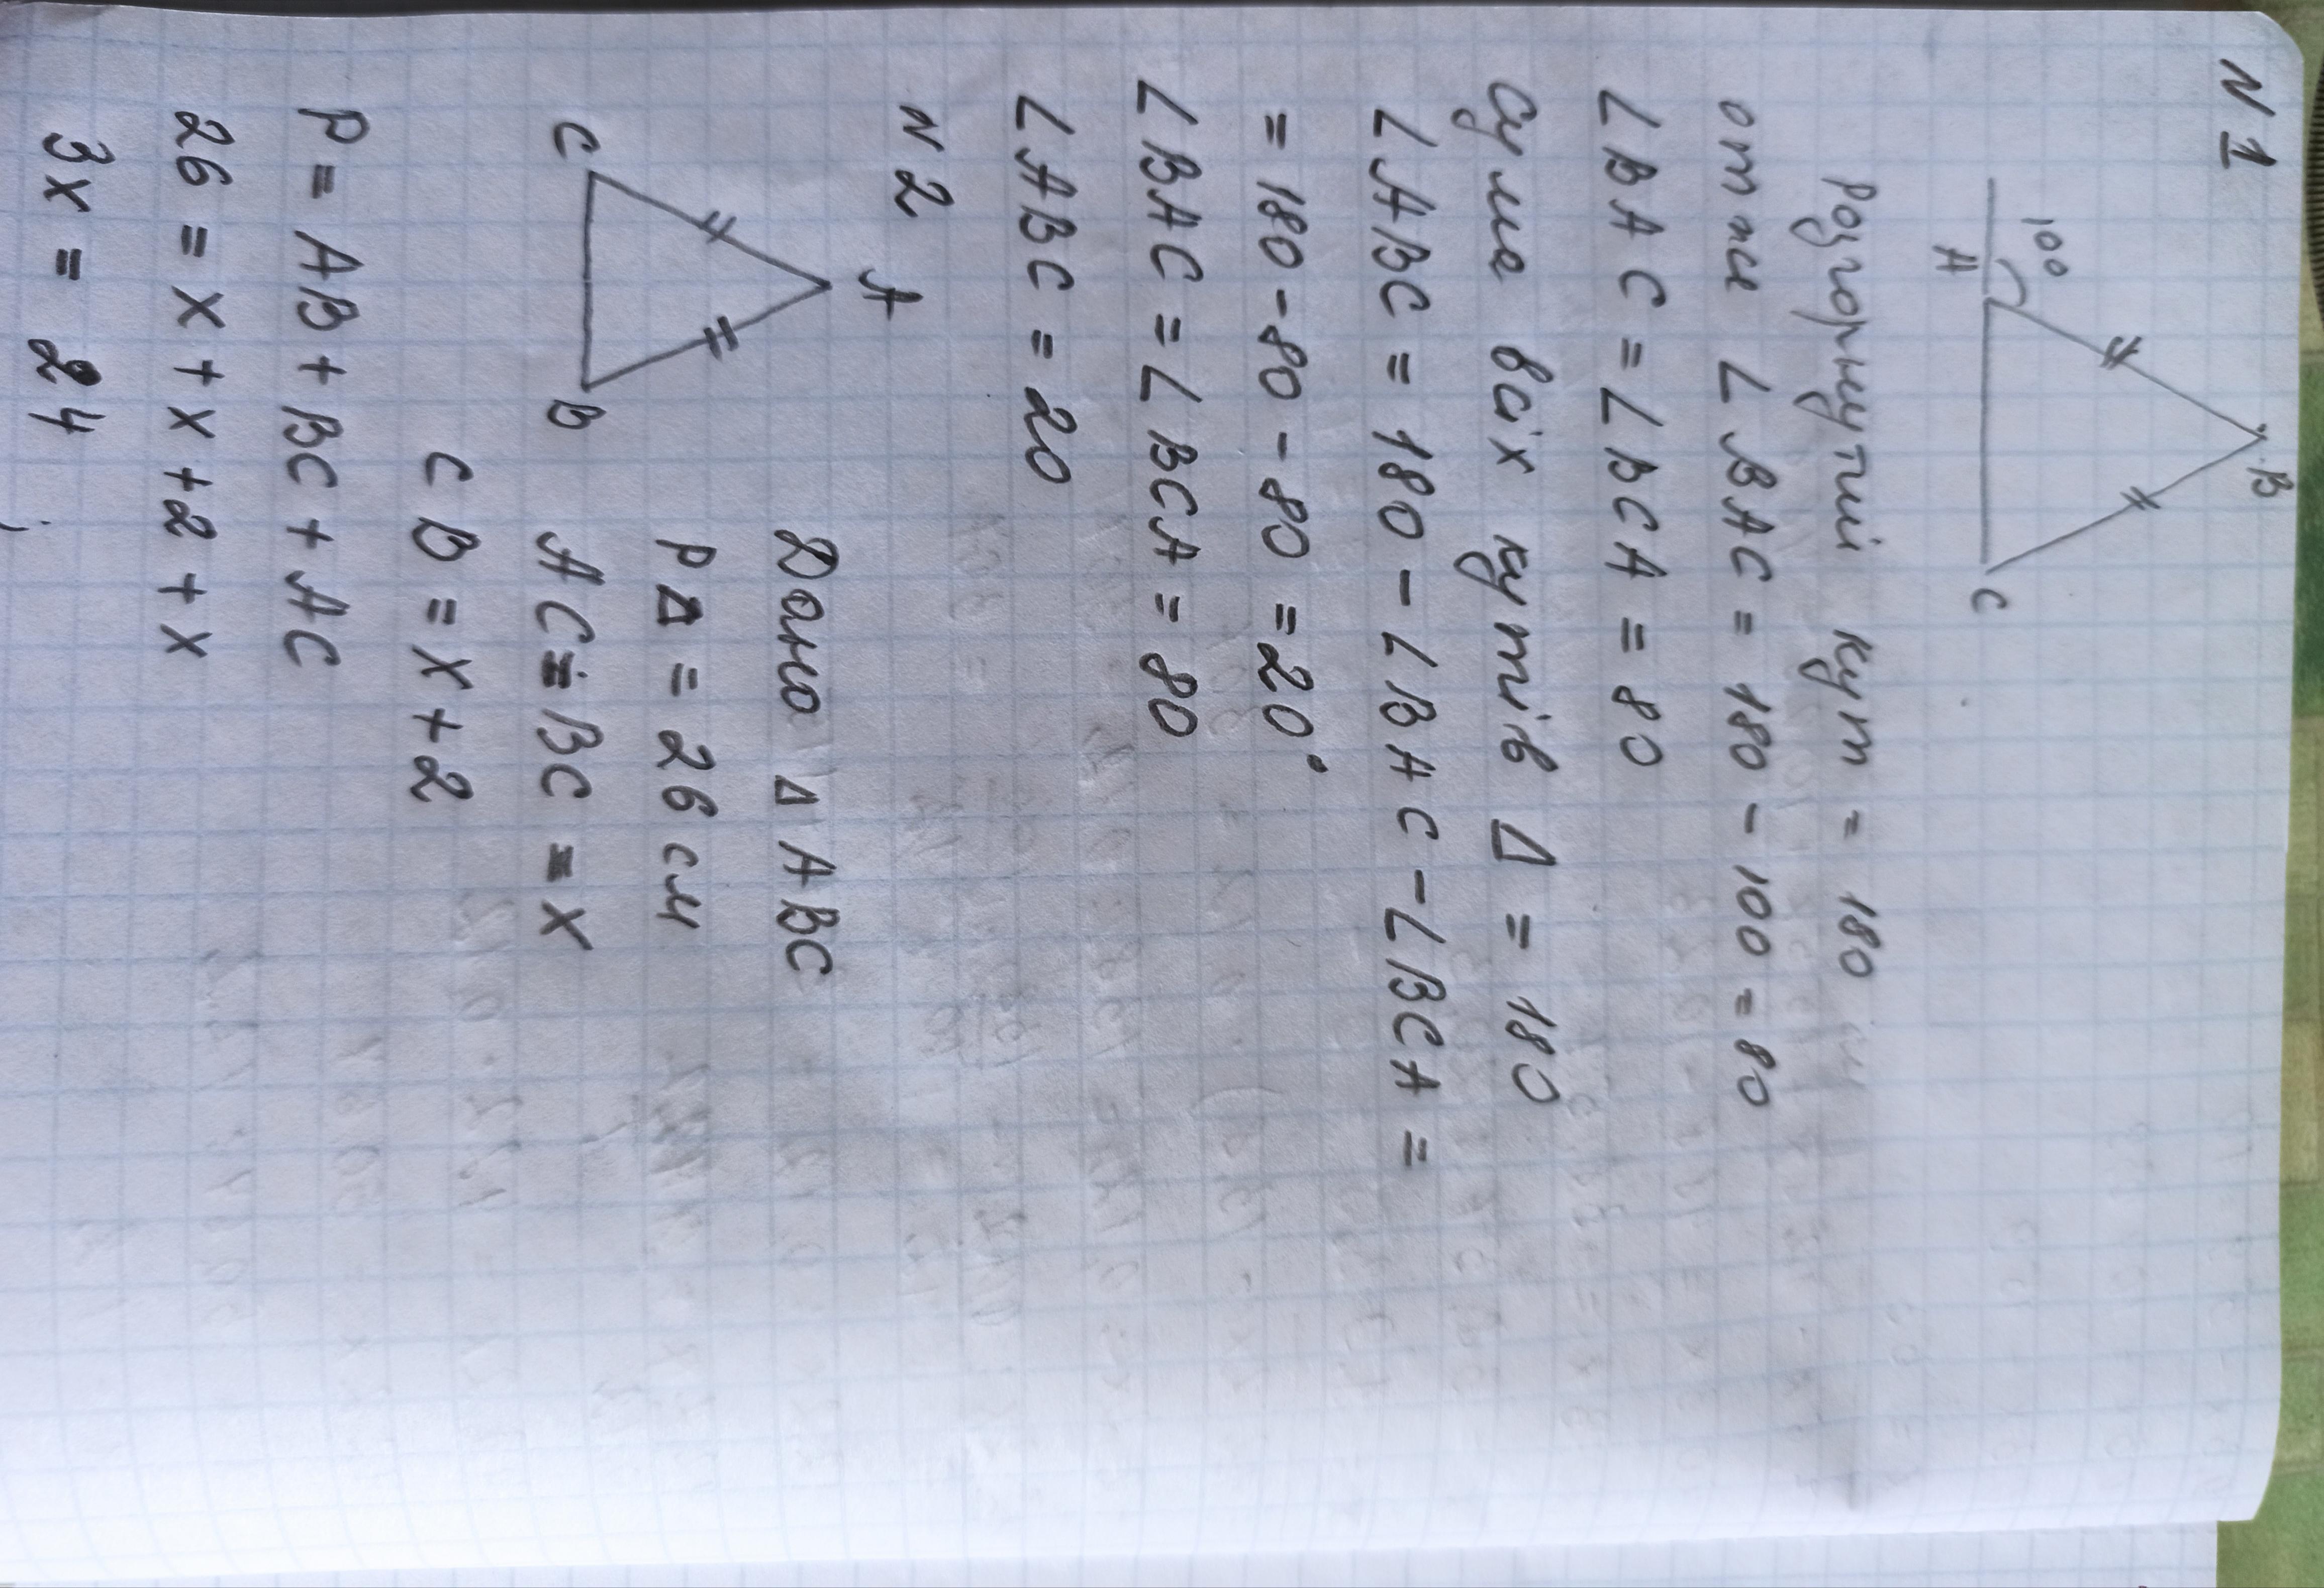 N 1
B
100
A
C
Розгорнутий кут = 180
отже ∠ BAC = 180 - 100 = 80
∠ BAC = ∠ BCA = 80
Сума всіх кутів Δ = 180
∠ ABC = 180 - ∠ BAC - ∠ BCA =
= 180 - 80 - 80 = 20°
∠ BAC = ∠ BCA = 80
∠ ABC = 20
N 2
A
C
B
Дано Δ ABC
PΔ = 26 см
AC = BC = x
CB = x + 2
P = AB + BC + AC
26 = x + x + 2 + x
3x = 24